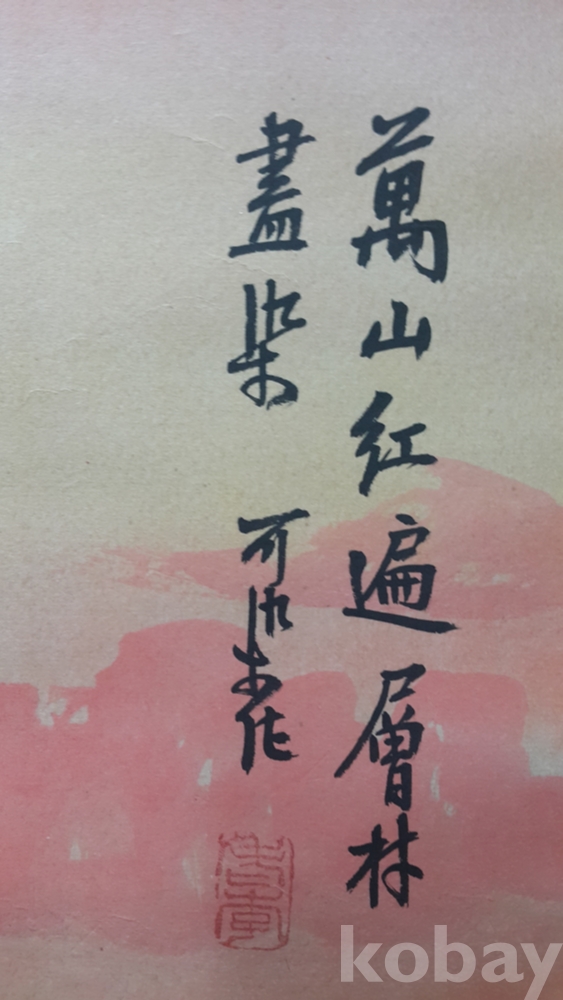 萬山紅遍層林
盡染 可染作
kobay